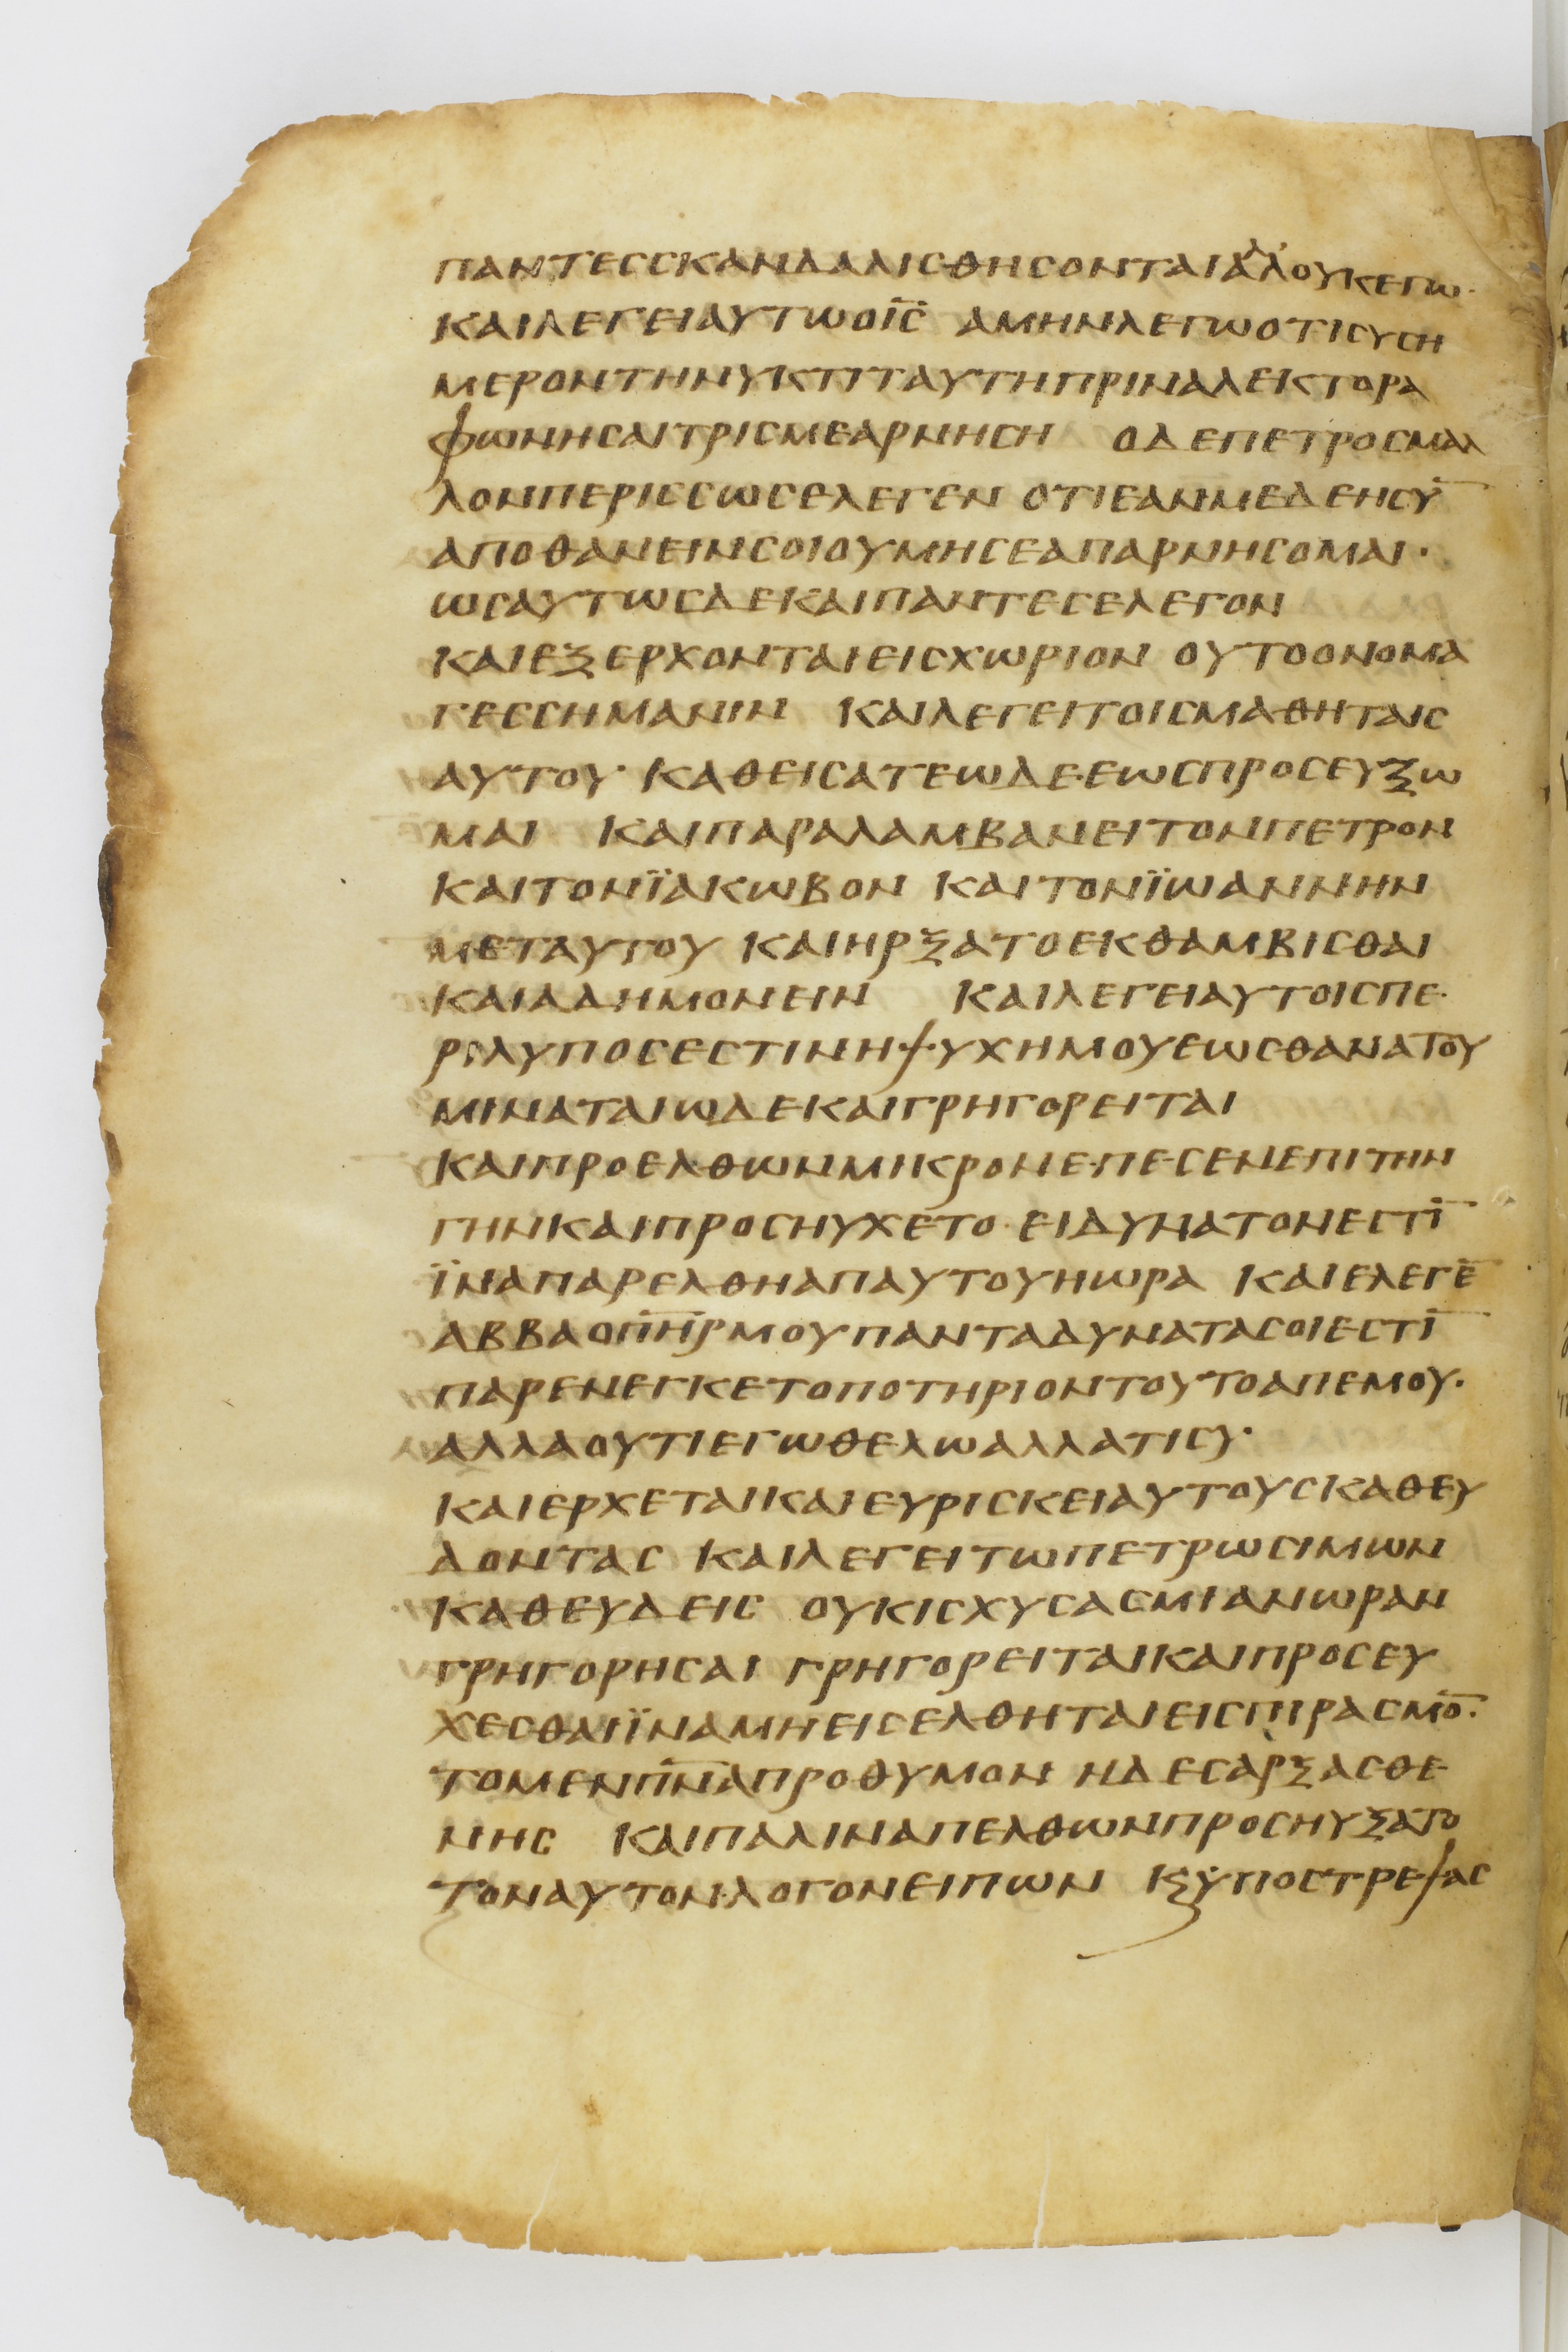 ΠΑΝΤΕΣΣΚΑΝΔΑΛΙΣΘΗΣΟΝΤΑΙΑΛΛΟΥΚΕΓΩ·
ΚΑΙΛΕΓΕΙΑΥΤΩΟΙ̅Σ̅ ΑΜΗΝΛΕΓΩΟΤΙΣΥΣΗ
ΜΕΡΟΝΤΗΝΥΚΤΙΤΑΥΤΗΠΡΙΝΑΛΕΚΤΟΡΑ
ΦΩΝΗΣΑΙΤΡΙΣΜΕΑΡΝΗΣΗ ΟΔΕΠΕΤΡΟΣΜΑΛ
ΛΟΝΠΕΡΙΣΣΩΣΕΛΕΓΕΝ ΟΤΙΕΑΝΜΕΔΕΗΣΥ̅
ΑΠΟΘΑΝΕΙΝΣΟΙΟΥΜΗΣΕΑΠΑΡΝΗΣΟΜΑΙ·
ΩΣΑΥΤΩΣΔΕΚΑΙΠΑΝΤΕΣΕΛΕΓΟΝ
ΚΑΙΕΞΕΡΧΟΝΤΑΙΕΙΣΧΩΡΙΟΝ ΟΥΤΟΟΝΟΜΑ
ΓΕΣΣΗΜΑΝΙΝ ΚΑΙΛΕΓΕΙΤΟΙΣΜΑΘΗΤΑΙΣ
ΑΥΤΟΥ ΚΑΘΕΙΣΑΤΕΩΔΕ·ΕΩΣΠΡΟΣΕΥΞΩ
ΜΑΙ ΚΑΙΠΑΡΑΛΑΜΒΑΝΕΙΤΟΝΠΕΤΡΟΝ
ΚΑΙΤΟΝΪΑΚΩΒΟΝ ΚΑΙΤΟΝΪΩΑΝΝΗΝ
ΜΕΤΑΥΤΟΥ ΚΑΙΗΡΞΑΤΟΕΚΘΑΜΒΙΣΘΑΙ
ΚΑΙΑΔΗΜΟΝΕΙΝ ΚΑΙΛΕΓΕΙΑΥΤΟΙΣΠΕ
ΡΙΛΥΠΟΣΕΣΤΙΝΗΨΥΧΗΜΟΥΕΩΣΘΑΝΑΤΟΥ
ΜΙΝΑΤΑΙΩΔΕΚΑΙΓΡΗΓΟΡΕΙΤΑΙ
ΚΑΙΠΡΟΕΛΘΩΝΜΙΚΡΟΝΕΠΕΣΕΝΕΠΙΤΗΝ
ΓΗΝΚΑΙΠΡΟΣΗΥΧΕΤΟ·ΕΙΔΥΝΑΤΟΝΕΣΤΙ̅
ΪΝΑΠΑΡΕΛΘΗΑΠΑΥΤΟΥΗΩΡΑ ΚΑΙΕΛΕΓΕ̅
ΑΒΒΑΟΠ̅Η̅Ρ̅ΜΟΥΠΑΝΤΑΔΥΝΑΤΑΣΟΙΕΣΤΙ̅
ΠΑΡΕΝΕΓΚΕΤΟΠΟΤΗΡΙΟΝΤΟΥΤΟΑΠΕΜΟΥ·
ΑΛΛΑΟΥΤΙΕΓΩΘΕΛΩΑΛΛΑΤΙΣΥ·
ΚΑΙΕΡΧΕΤΑΙΚΑΙΕΥΡΙΣΚΕΙΑΥΤΟΥΣΚΑΘΕΥ
ΔΟΝΤΑΣ ΚΑΙΛΕΓΕΙΤΩΠΕΤΡΩΣΙΜΩΝ
ΚΑΘΕΥΔΕΙΣ ΟΥΚΙΣΧΥΣΑΣΜΙΑΝΩΡΑΝ
ΓΡΗΓΟΡΗΣΑΙ ΓΡΗΓΟΡΕΙΤΑΙΚΑΙΠΡΟΣΕΥ
ΧΕΣΘΑΙΪΝΑΜΗΕΙΣΕΛΘΗΤΑΙΕΙΣΠΙΡΑΣΜΟ̅·
ΤΟΜΕΝΠ̅Ν̅Α̅ΠΡΟΘΥΜΟΝ ΗΔΕΣΑΡΞΑΣΘΕ
ΝΗΣ ΚΑΙΠΑΛΙΝΑΠΕΛΘΩΝΠΡΟΣΗΥΞΑΤΟ
ΤΟΝΑΥΤΟΝΛΟΓΟΝΕΙΠΩΝ ΚϗΥΠΟΣΤΡΕΨΑΣ